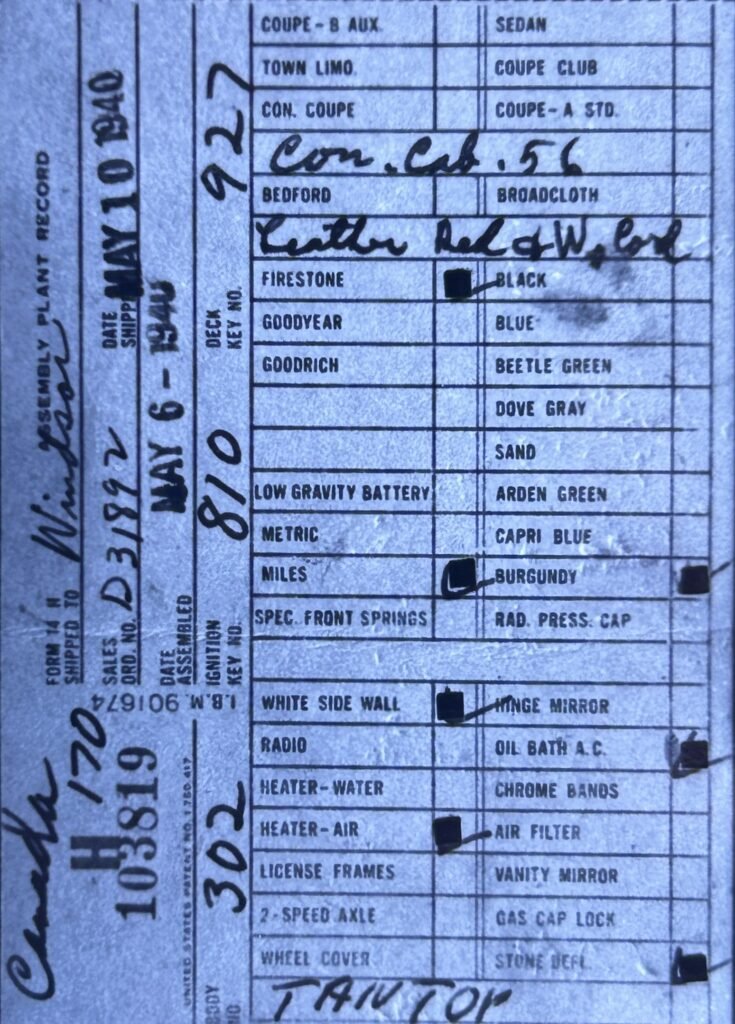 Canada
H 170
103819
UNITED STATES PATENT NO. 1,780,417
I.B.M. 901674
FORM 14 H ASSEMBLY PLANT RECORD
SHIPPED TO Windsor
SALES ORD. NO. D31892
DATE SHIPP MAY 10 1940
DATE ASSEMBLED MAY 6 - 1940
BODY NO 302
IGNITION KEY NO. 810
DECK KEY NO. 927
COUPE - B AUX. SEDAN
TOWN LIMO. COUPE CLUB
CON. COUPE COUPE - A STD.
Con. Cab. 56
BEDFORD BROADCLOTH
Leather Red & W. Cord
FIRESTONE BLACK
GOODYEAR BLUE
GOODRICH BEETLE GREEN
DOVE GRAY
SAND
LOW GRAVITY BATTERY ARDEN GREEN
METRIC CAPRI BLUE
MILES BURGUNDY
SPEC. FRONT SPRINGS RAD. PRESS. CAP
WHITE SIDE WALL HINGE MIRROR
RADIO OIL BATH A.C.
HEATER - WATER CHROME BANDS
HEATER - AIR AIR FILTER
LICENSE FRAMES VANITY MIRROR
2-SPEED AXLE GAS CAP LOCK
WHEEL COVER STONE DEFL.
TAN TOP